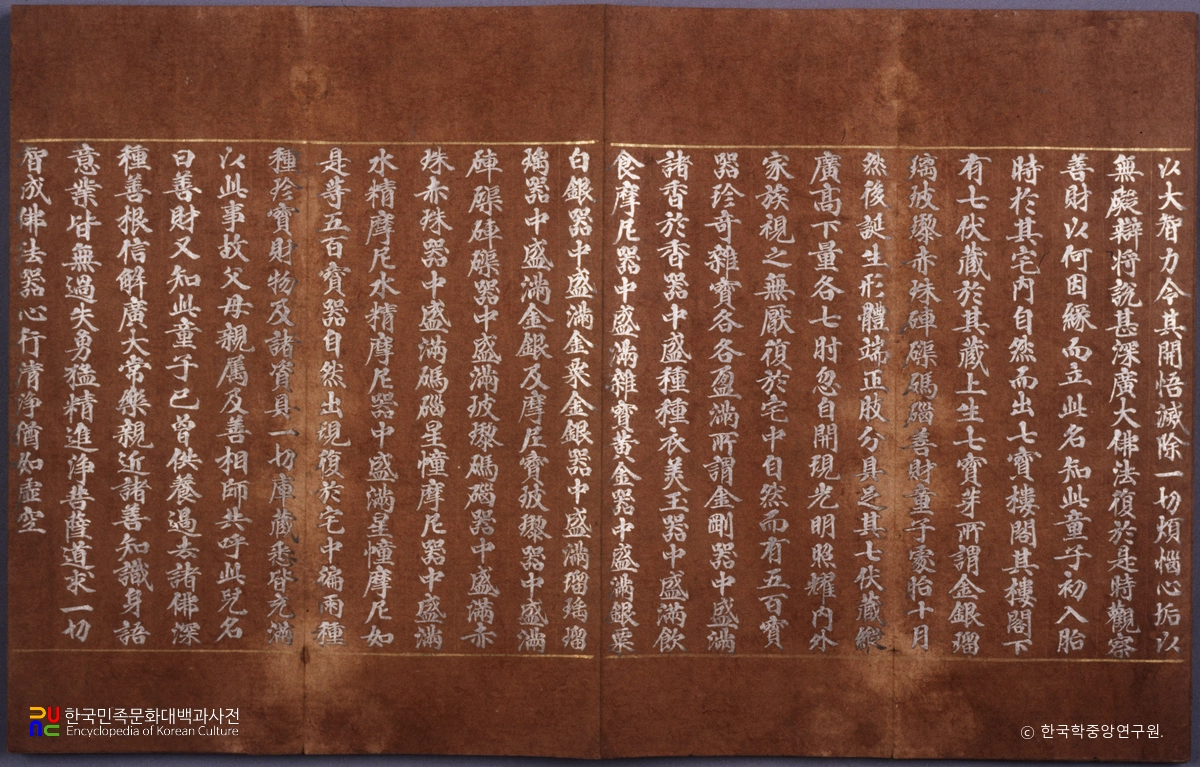 以大智力令其開悟滅除一切煩惱心垢以
無礙辯将說甚深廣大佛法復於是時觀察
善財以何因緣而立此名知此童子初入胎
時於其宅內自然而出七寶樓閣其樓閣下
有七伏藏於其藏上生七寶芽所謂金銀瑠
璃玻瓈赤珠硨磲碼碯善財童子處胎十月
然後誕生形體端正肢分具足其七伏藏縱
廣高下量各七肘忽自開現光明照耀內外
家族視之無厭復於宅中自然而有五百寶
器珍奇雜寶各各盈滿所謂金剛器中盛滿
諸香於香器中盛種種衣美玉器中盛滿飲
食摩尼器中盛滿雜寶黃金器中盛滿銀粟
白銀器中盛滿金粟金銀器中盛滿瑠璃瑠
璃器中盛滿金銀及摩尼寶玻瓈器中盛滿
硨磲硨磲器中盛滿玻瓈碼碯器中盛滿赤
珠赤珠器中盛滿碼碯星幢摩尼器中盛滿
水精摩尼水精摩尼器中盛滿星幢摩尼如
是等五百寶器自然出現復於宅中徧雨種
種珍寶財物及諸資具一切庫藏悉皆充滿
以此事故父母親屬及善相師共呼此兒名
曰善財又知此童子已曾供養過去諸佛深
種善根信解廣大常樂親近諸善知識身語
意業皆無過失勇猛精進淨菩薩道求一切
智成佛法器心行清淨猶如虛空
한국민족문화대백과사전
Encyclopedia of Korean Culture
© 한국학중앙연구원.